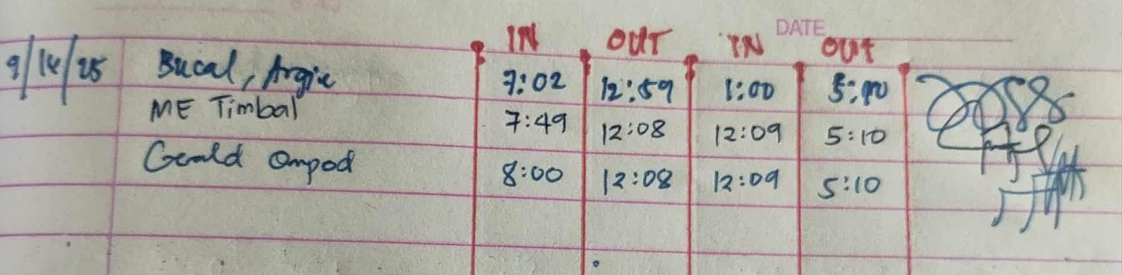 DATE
IN OUT IN OUT
9/14/25 Bucal, Argie 7:02 12:59 1:00 5:10
ME Timbal 7:49 12:08 12:09 5:10
Gerald Ompod 8:00 12:08 12:09 5:10